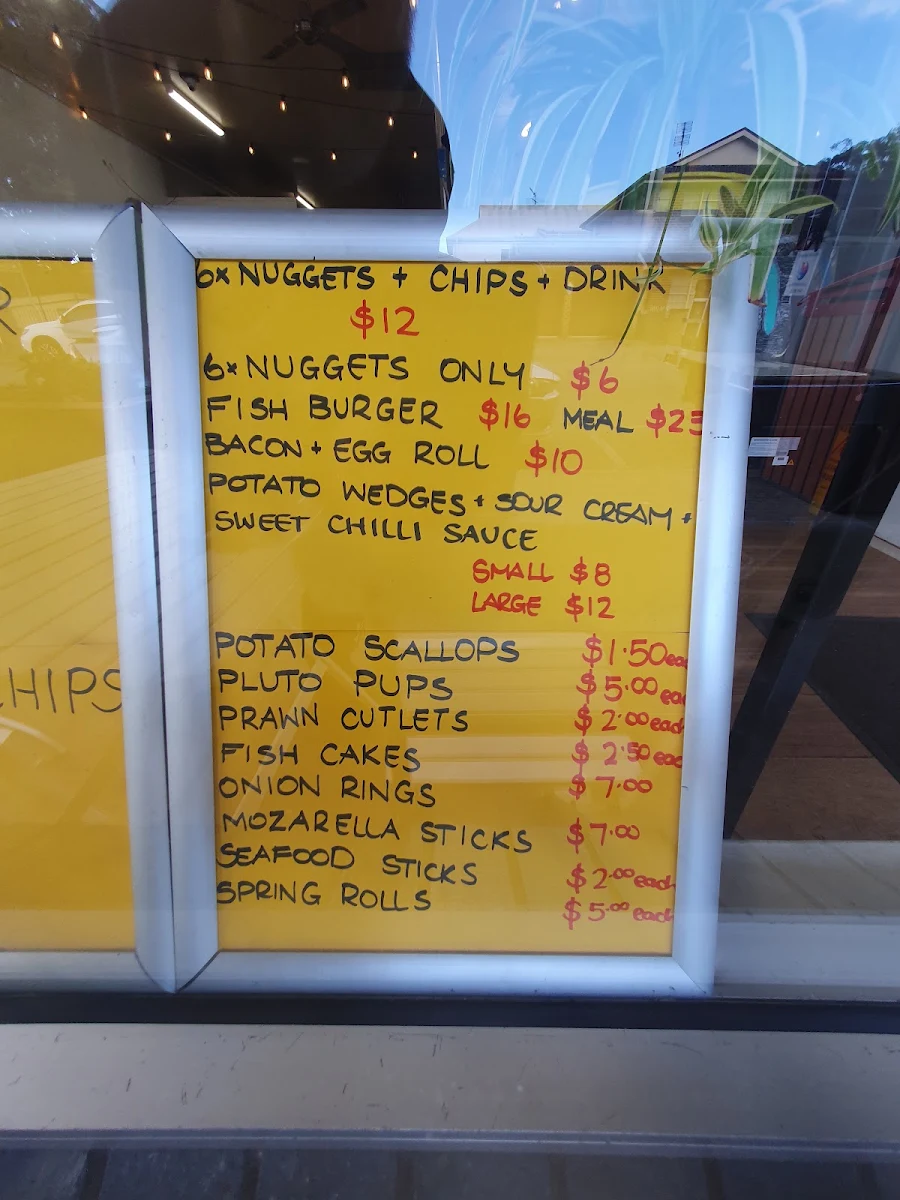 6x NUGGETS + CHIPS + DRINK
$12
6x NUGGETS ONLY $6
FISH BURGER $16 MEAL $23
BACON + EGG ROLL $10
POTATO WEDGES + SOUR CREAM +
SWEET CHILLI SAUCE
SMALL $8
LARGE $12
POTATO SCALLOPS $1.50 eac
PLUTO PUPS $5.00 eac
PRAWN CUTLETS $2.00 each
FISH CAKES $2.50 each
ONION RINGS $7.00
MOZARELLA STICKS $7.00
SEAFOOD STICKS $2.00 each
SPRING ROLLS $5.00 each
R
CHIPS